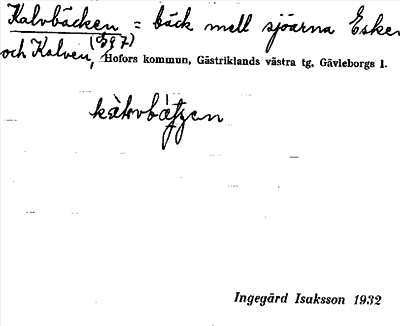 Kalvbäcken = bäck mell sjöarna Esken
och Kalven, Hofors kommun, Gästriklands västra tg. Gävleborgs l.
Ingegärd Isaksson 1932